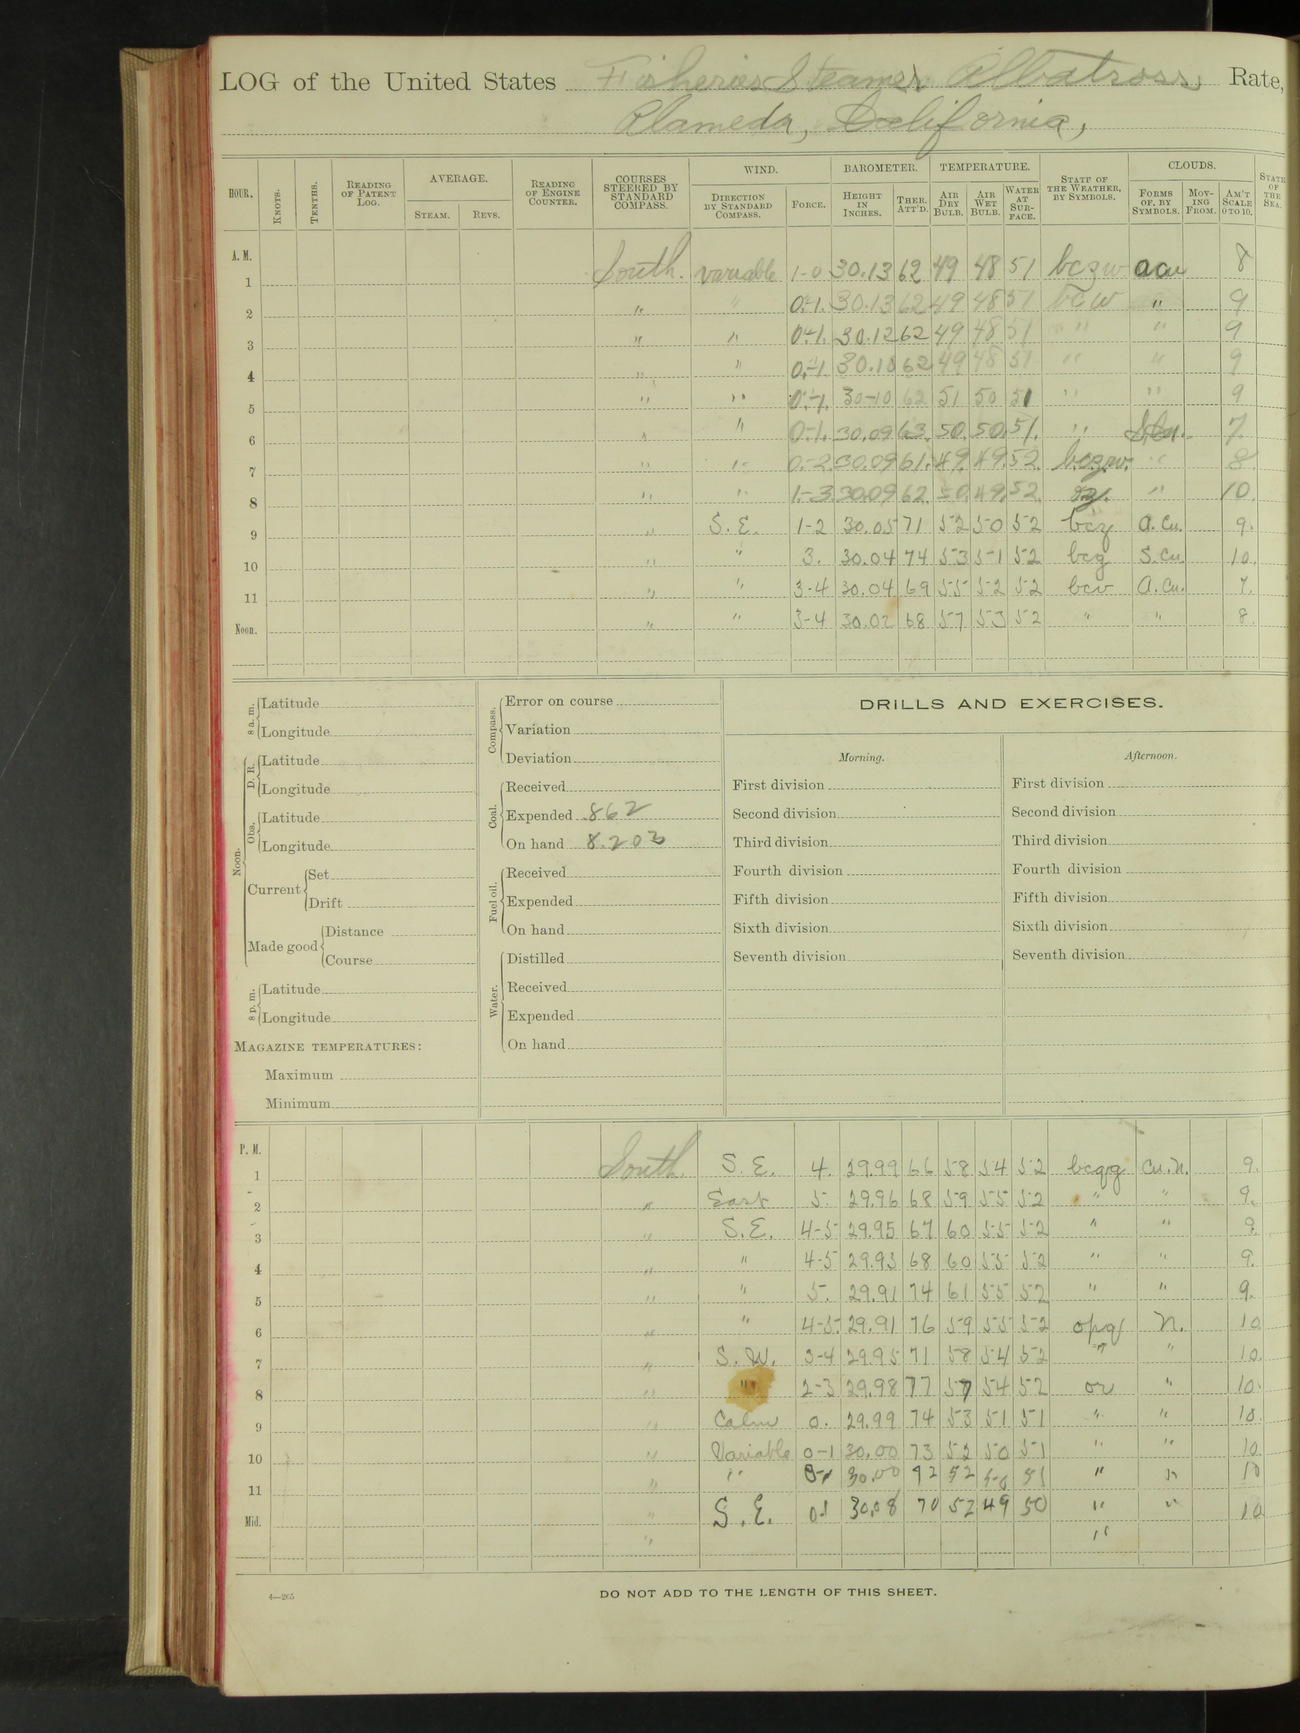 LOG of the United States Fisheries Steamer Albatross, Rate,
Alameda, California,
HOUR. KNOTS. TENTHS. READING OF PATENT LOG. AVERAGE. STEAM. REVS. READING OF ENGINE COUNTER. COURSES STEERED BY STANDARD COMPASS. WIND. DIRECTION BY STANDARD COMPASS. FORCE. BAROMETER. HEIGHT IN INCHES. THER. ATT'D. TEMPERATURE. AIR DRY BULB. AIR WET BULB. WATER AT SURFACE. STATE OF THE WEATHER, BY SYMBOLS. CLOUDS. FORMS OF, BY SYMBOLS. MOVING FROM. AM'T SCALE 0 TO 10. STATE OF THE SEA.
A. M.
1 South. variable 1-0 30.13 62 49 48 51 bczw acu 8
2 " " 0-1. 30.13 62 49 48 51 bcw " 9
3 " " 0-1. 30.12 62 49 48 51 " " 9
4 " " 0-1. 30.10 62 49 48 51 " " 9
5 " " 0-1. 30-10 62 51 50 51 " " 9
6 " " 0-1. 30.09 63. 50. 50. 51. " 7.
7 " " 0-2 30.09 61. 49. 49. 52 bczw. " 8
8 " " 1-3 30.09 62 50 49. 52 oz. " 10.
9 " S. E. 1-2 30.05 71 52 50 52 bcz a. Cu. 9.
10 " " 3. 30.04 74 53 51 52 bcg S. Cu 10.
11 " " 3-4 30.04 69 55 52 52 bcv a. Cu. 7.
Noon. " " 3-4 30.02 68 57 53 52 " " 8.
8 a. m. Latitude
Longitude
Noon. D. R. Latitude
Longitude
Obs. Latitude
Longitude
Current Set
Drift
Made good Distance
Course
8 p. m. Latitude
Longitude
MAGAZINE TEMPERATURES:
Maximum
Minimum
Compass. Error on course
Variation
Deviation
Coal. Received
Expended .862
On hand 8.203
Fuel oil. Received
Expended
On hand
Water. Distilled
Received
Expended
On hand
DRILLS AND EXERCISES.
Morning.
First division
Second division
Third division
Fourth division
Fifth division
Sixth division
Seventh division
Afternoon.
First division
Second division
Third division
Fourth division
Fifth division
Sixth division
Seventh division
P. M.
1 South. S. E. 4. 29.99 66 58 54 52 bcqg Cu. N. 9.
2 " East 5. 29.96 68 59 55 52 " " 9.
3 " S. E. 4-5 29.95 67 60 55 52 " " 9.
4 " " 4-5 29.93 68 60 55 52 " " 9.
5 " " 5. 29.91 74 61 55 52 " " 9.
6 " " 4-5. 29.91 76 59 55 52 opq N. 10
7 " S. W. 3-4 29.95 71 58 54 52 " " 10.
8 " " 2-3 29.98 77 57 54 52 or " 10.
9 " Calm 0. 29.99 74 53 51 51 " " 10.
10 " Variable 0-1 30.00 73 52 50 51 " " 10
11 " " 0-1 30.00 72 52 50 51 " " 10
Mid. " S. E. 0-1 30.08 70 52 49 50 " " 10
" "
4—265
DO NOT ADD TO THE LENGTH OF THIS SHEET.